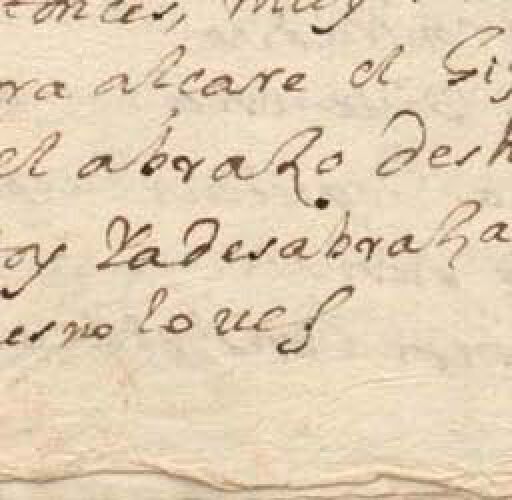 tonces, muy
ra alcare el Gig
el abrazo desh
oy Yadesabraza
esno lo ues